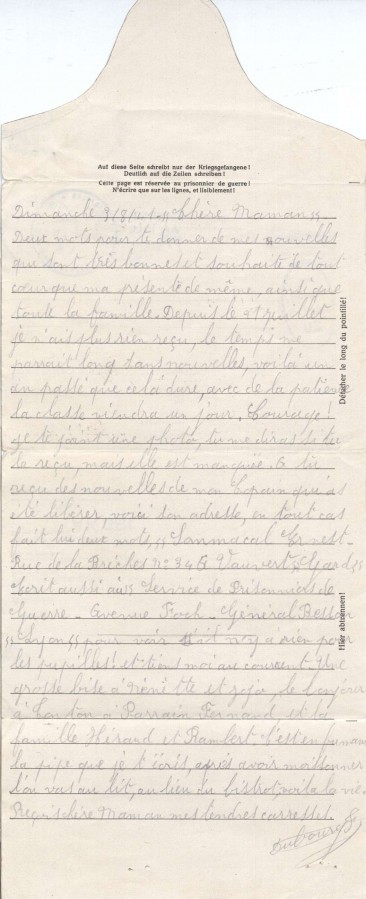 Auf diese Seite schreibt nur der Kriegsgefangene!
Deutlich auf die Zeilen schreiben!
Cette page est réservée au prisonnier de guerre!
N'écrire que sur les lignes, et lisiblement!
Dimanche 3/8/41 Chère Maman
Deux mots pour te donner de mes nouvelles
qui sont très bonnes et souhaite de tout
cœur que ma présente de même, ainsi que
toute la famille. Depuis le 21 juillet
je n'ais plus rien reçu, le temps me
parrait long sans nouvelles, voilà un
an passé que celà dure, avec de la patience
la classe viendra un jour. Courage!
je te joint une photo, tu me diras si tu
la reçu mais elle est manquée. tu
reçu des nouvelles de mon Copain qu'as
été libérer, voici son adresse, en tout cas
fait lui deux mots, Sanmacal Ernest
Rue de la Brèches n° 346 Vauvert Gard
Ecrit aussi au Service de Prisonniers de
Guerre Avenue Foch. Général
Lyon pour voir s'il n'y a rien pour
les pupilles! et tiens moi au courrent. Une
grosse bise à Nénette et jojo, le bonjour
à Tonton à Parrain Fernand et la
famille Héraud et Rambert C'est en fumant
la pipe que je t'écris, après avoir moissonner
l'on vas au lit, au lieu du bistrot, voila la vie.
Reçu chère Maman mes tendres caresses.
Détacher le long du pointillé!
Hier abtrennen!